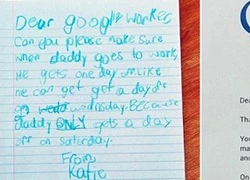 Dear google worker
Can you please make sure
when daddy goes to work,
He gets one day off. Like
he can get get a day off
on wedn wednsday. Because
daddy ONLY gets a day
off on Saturday.
From,
Katie
Dea
Tha
You